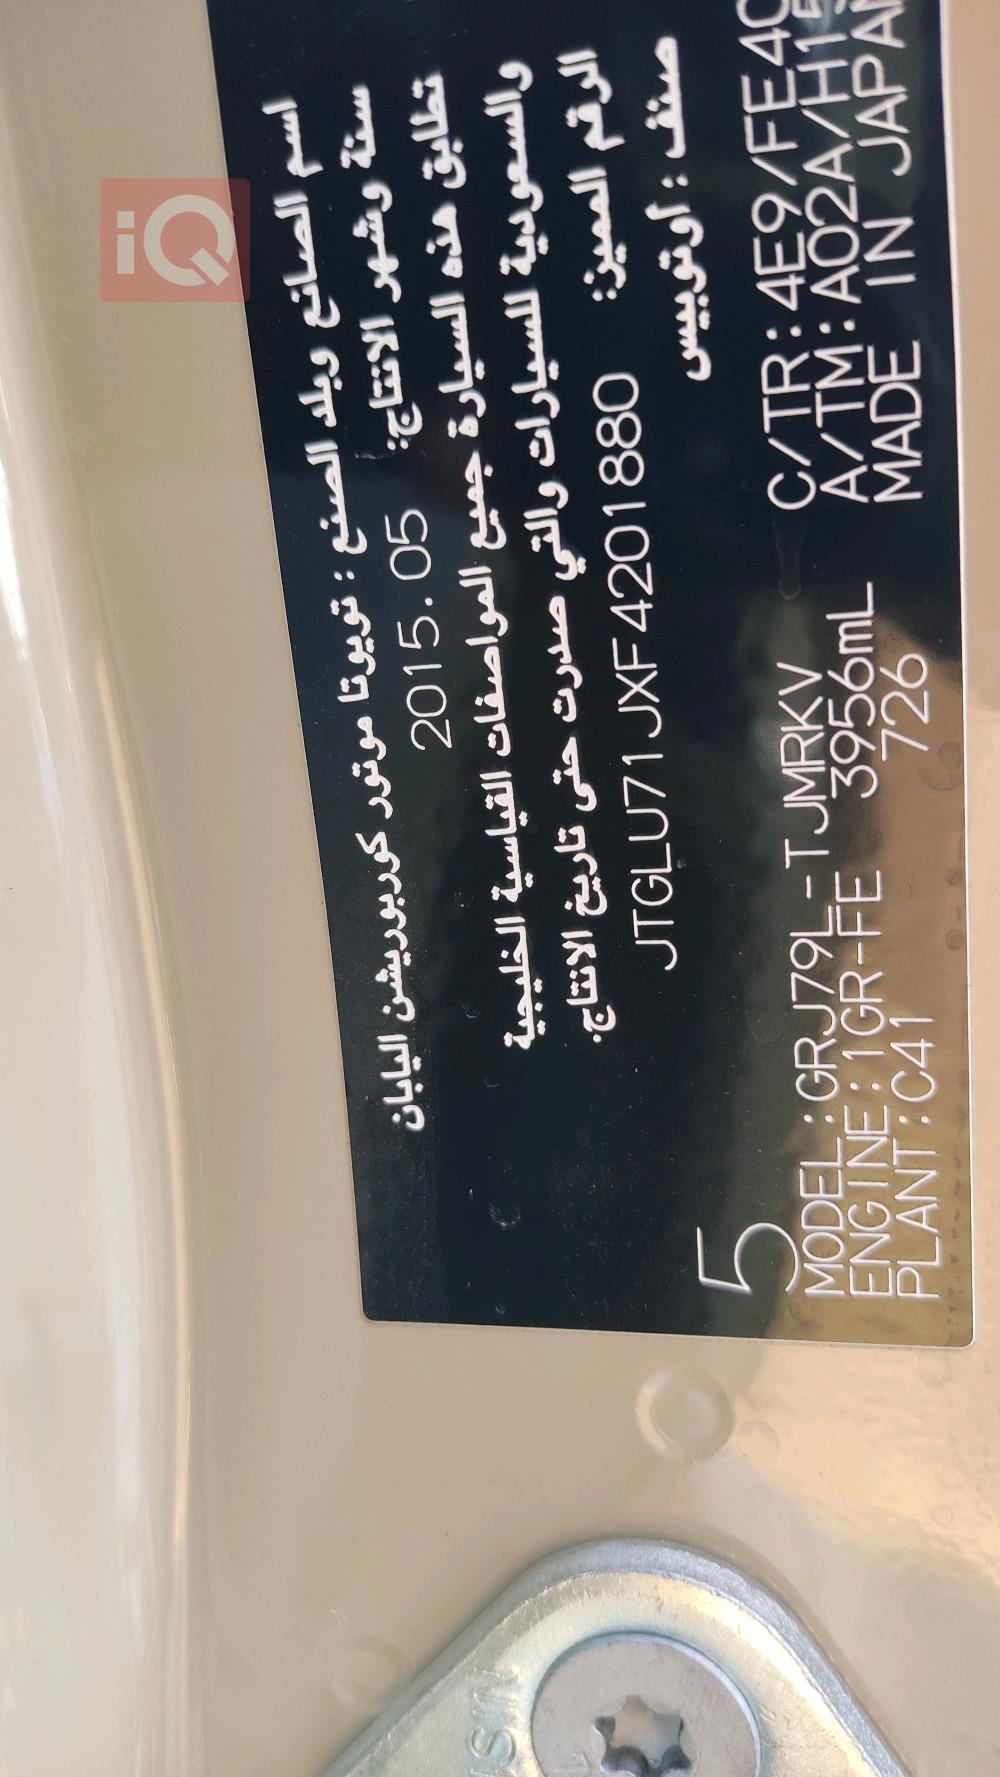 iQ
اسم الصانع وبلد الصنع : تويوتا موتور كوربوريشن اليابان
سنة وشهر الانتاج: 2015.05
تطابق هذه السيارة جميع المواصفات القياسية الخليجية
والسعودية للسيارات والتي صدرت حتى تاريخ الانتاج.
الرقم المميز: JTGLU71JXF4201880
صنف : أوتوبيس
5
MODEL:GRJ79L-TJMRKV C/TR:4E9/FE40
ENGINE:1GR-FE 3956mL A/TM:A02A/H15
PLANT:C41 726 MADE IN JAPAN